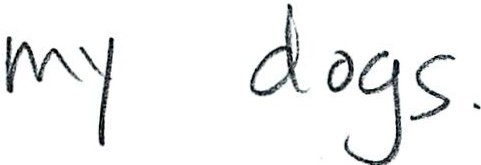 my dogs.